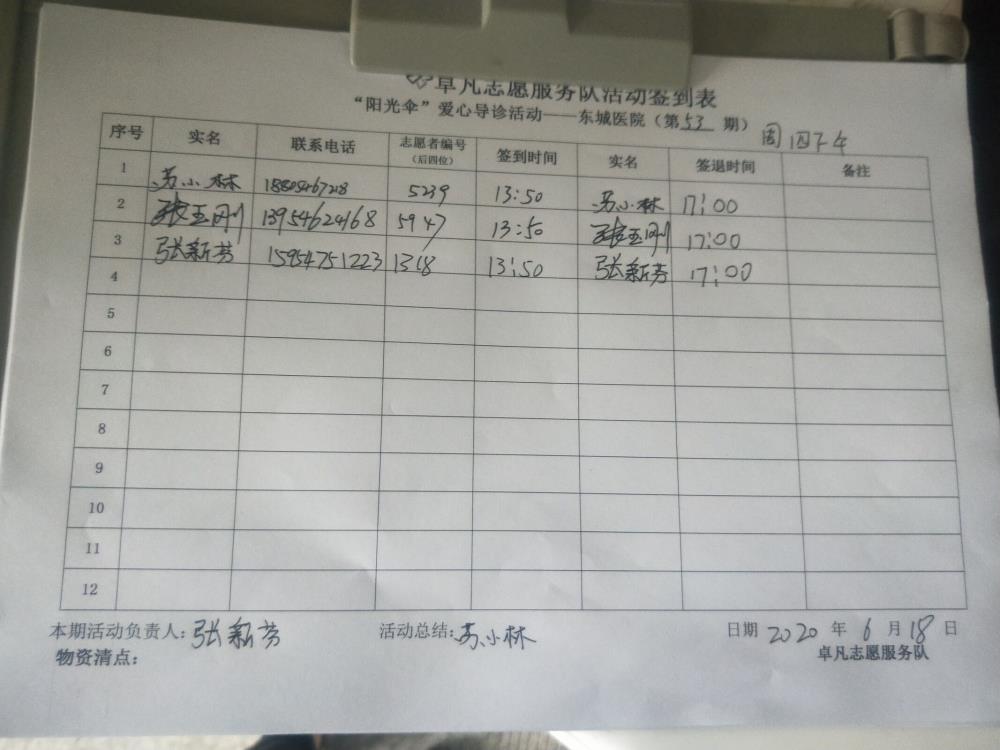 卓凡志愿服务队活动签到表
“阳光伞”爱心导诊活动——东城医院（第53期） 周四下午
序号 实名 联系电话 志愿者编号（后四位） 签到时间 实名 签退时间 备注
1 苏小林 5239 13:50 苏小林 17:00
2 张玉刚 13954624168 5947 13:50 张玉刚 17:00
3 张新芳 15954751223 13:50 张新芳 17:00
4
5
6
7
8
9
10
11
12
本期活动负责人：张新芳 活动总结：苏小林 日期 2020 年 6 月 18 日
物资清点： 卓凡志愿服务队